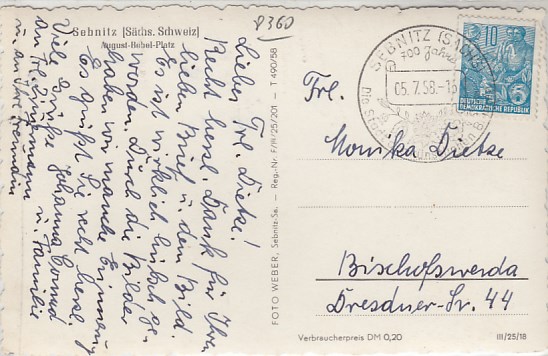 P360
Sebnitz (Sächs. Schweiz)
August-Bebel-Platz
Liebes Frl. Dietze!
Recht herzl. Dank für Ihren
lieben Brief u. dem Bild.
Es ist wirklich hübsch ge-
worden. Durch die Bilder
haben wir manche Erinnerung
Es grüßt Sie recht herzl.
Johanna u. Familie
Viele Grüße
an Frl.
u. Ihre Freundin
FOTO WEBER, Sebnitz-Sa. — Reg.-Nr. F/III/25/201 - T 490/58
SEBNITZ (SACHS)
700 Jahre
05.7.58.-1
10
5
DEUTSCHE
DEMOKRATISCHE REPUBLIK
Frl.
Monika Dietze
Bischofswerda
Dresdner-Str. 44
Verbraucherpreis DM 0,20
III/25/18